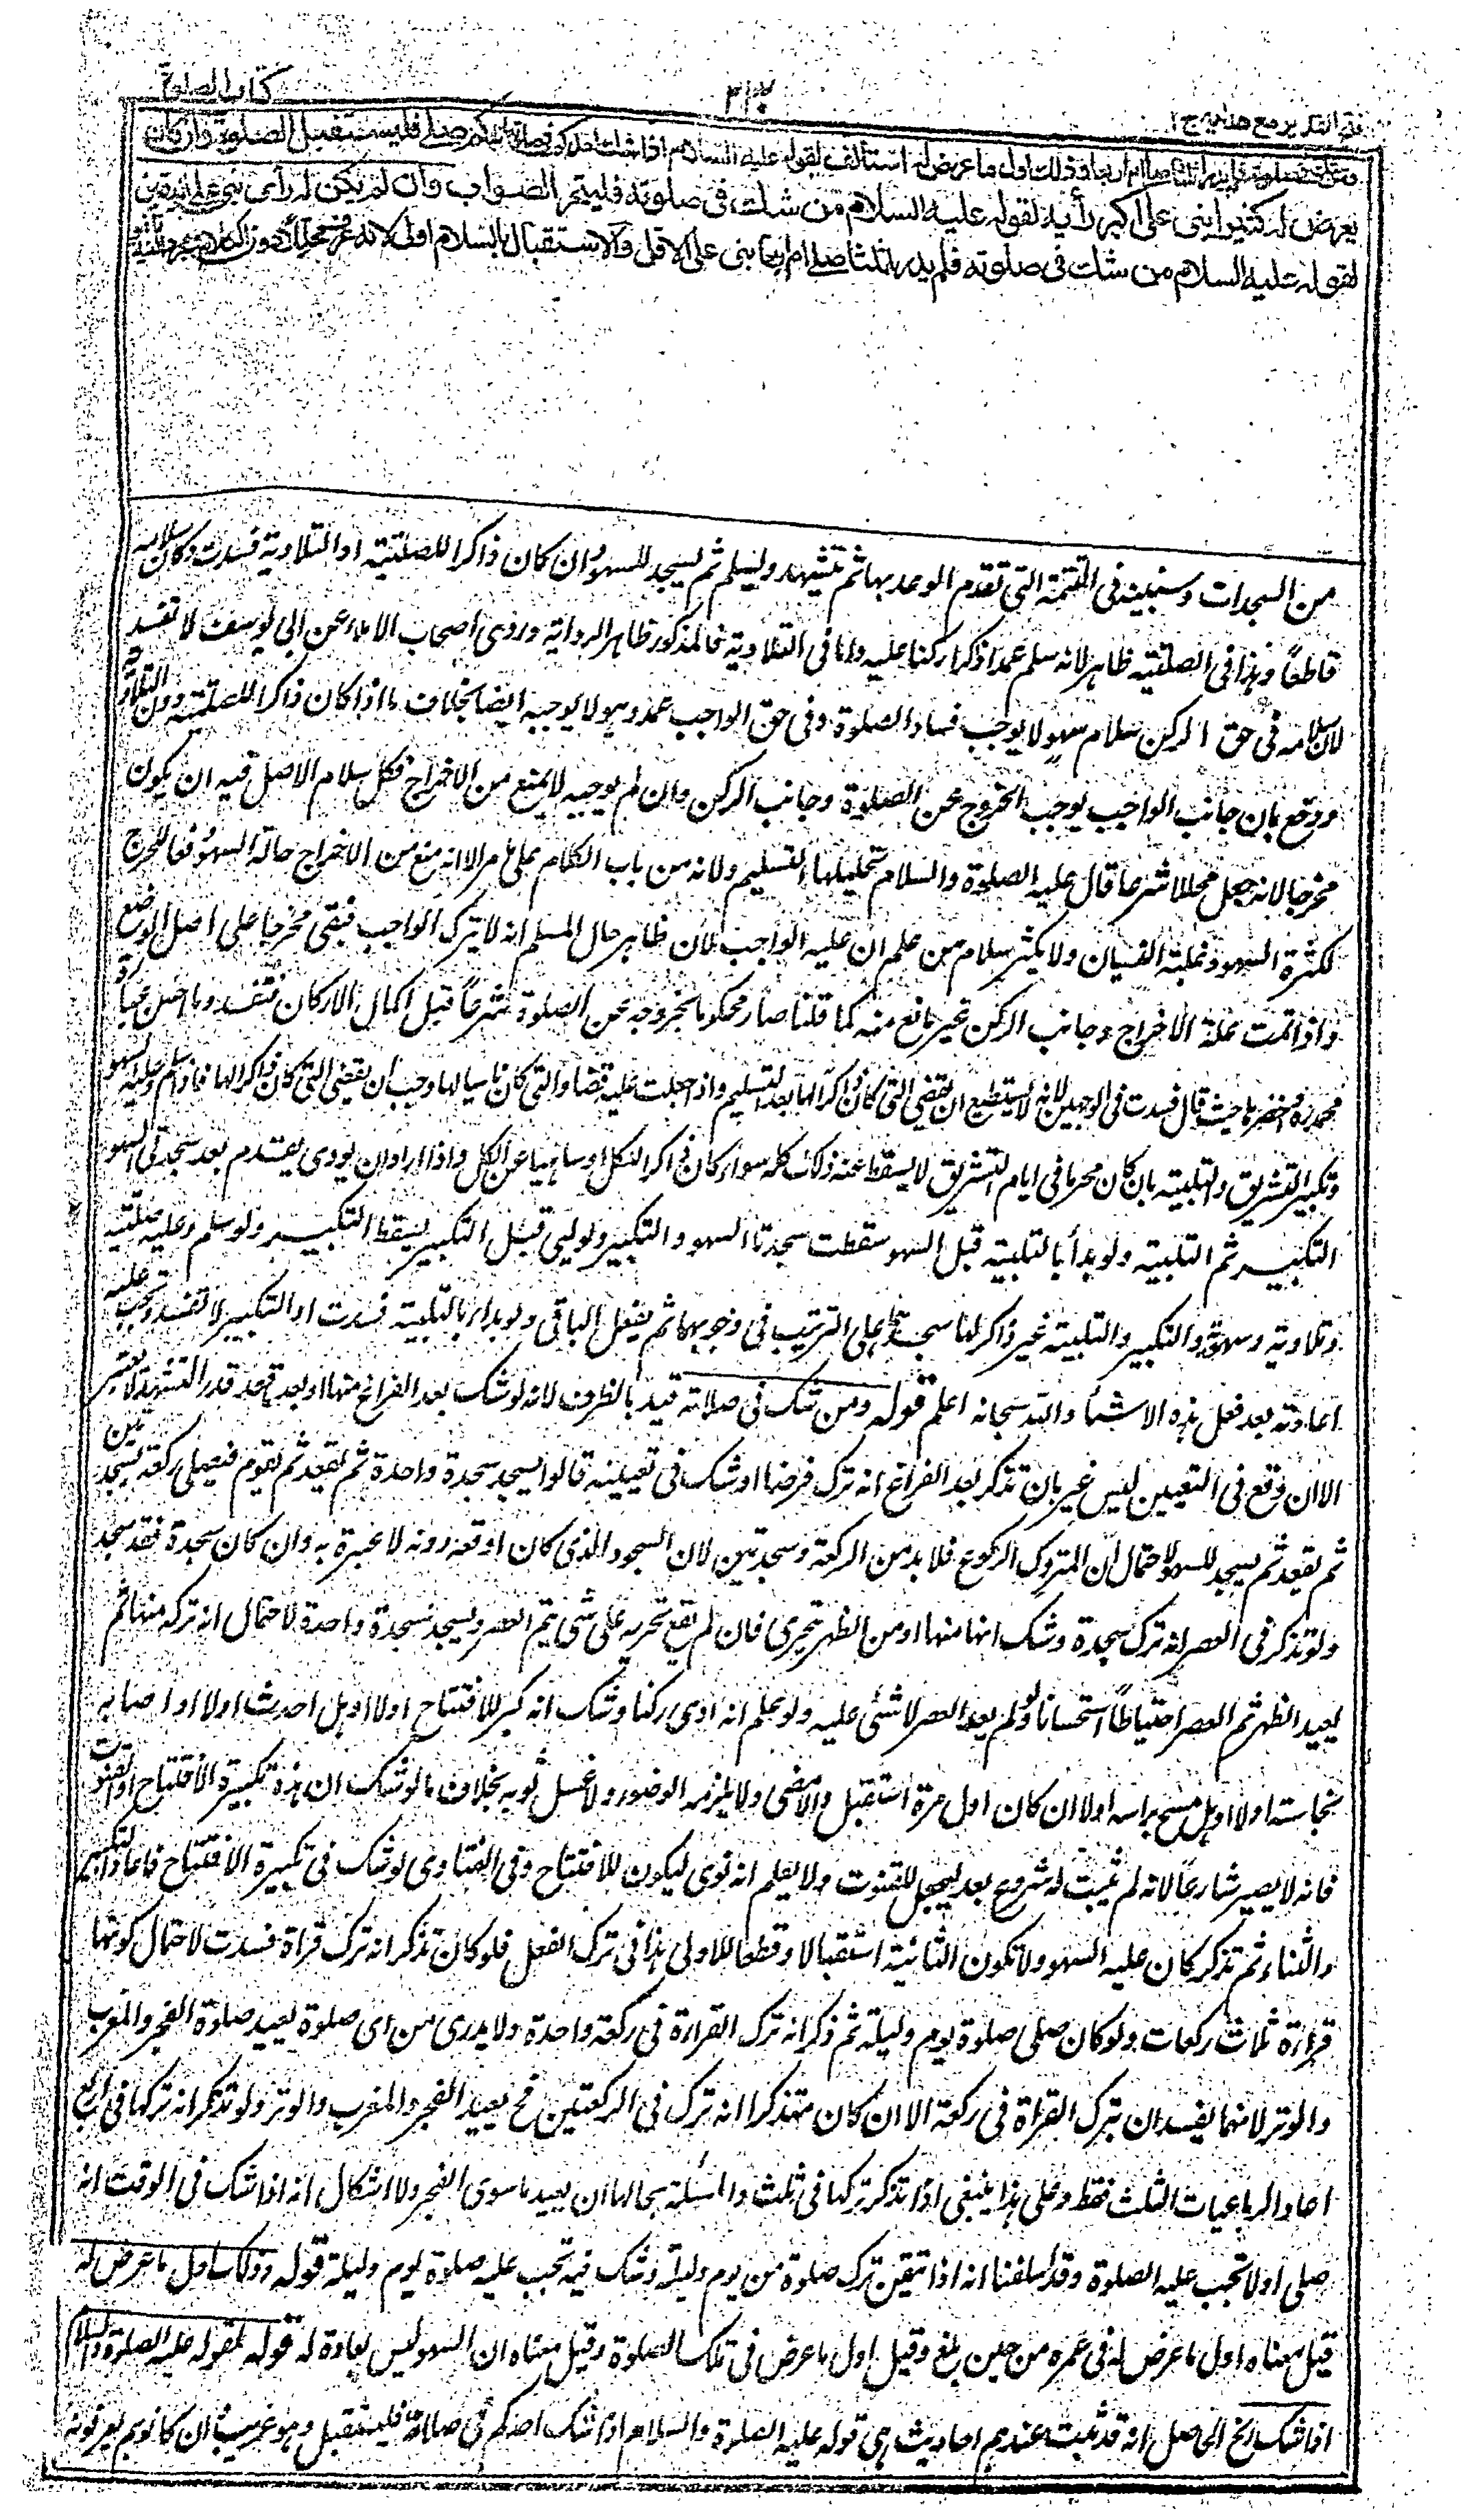 فتح القدير مع هدايه ج ١
كتاب الصلوة
ومن شك فى صلوته فلم يدر اثلثا صلى ام اربعا وذلك اول ما عرض له استأنف لقوله عليه السلام اذا شك احدكم فى صلوته انه كم صلى فليستقبل الصلوة وان كان
يعرض له كثيرا بنى على اكبر رأيه لقوله عليه السلام من شك فى صلوته فليتحر الصواب وان لم يكن له رأى بنى على اليقين
لقوله عليه السلام من شك فى صلوته فلم يدر اثلثا صلى ام اربعا بنى على الاقل والاستقبال بالسلام اولى لانه عرف محللا دون الكلام
من السجدات وسنبينه فى التتمة التى تقدم الوعد بها ثم يتشهد ويسلم ثم يسجد للسهو وان كان ذاكرا للصلبية او التلاوية فسدت وكان سلامه
قاطعًا وهذا فى الصلبية ظاهر لانه سلم عمدا ذاكرا ركنا عليه واما فى التلاوية فالمذكور ظاهر الرواية وروى اصحاب الاملاء عن ابى يوسف لا تفسد
لان سلامه فى حق الركن سلام سهو لا يوجب فساد الصلوة وفى حق الواجب عمد وهو لا يوجبه ايضا بخلاف ما اذا كان ذاكرا للصلبية دون التلاوية
ودفع بان جانب الواجب يوجب الخروج عن الصلوة وجانب الركن وان لم يوجبه لا يمنع من الاخراج فكل سلام الاصل فيه ان يكون
مخرجا لانه جعل محللا شرعا قال عليه الصلوة والسلام تحليلها التسليم ولانه من باب الكلام على ما مر الا انه منع من الاخراج حالة السهو دفعا للحرج
لكثرة السهو وغلبة النسيان ولا يكثر سلام من علم ان عليه الواجب لان ظاهر حال المسلم انه لا يترك الواجب فبقى مخرجا على اصل الوضع
واذا تمت علة الاخراج وجانب الركن غير مانع منه كما قلنا صار محكوما بخروجه عن الصلوة شرعًا قبل اكمال الاركان فتفسد وما احسن عبارة
محمد رح واخصرها حيث قال فسدت فى الوجهين لانه لا يستطيع ان يقضى التى كان ذاكرا لها بعد التسليم واذا جعلت عليه قضاء التى كان ناسيا لها وجب ان يقضى التى كان ذاكرا لها فاذا سلم وعليه السهو
وتكبير التشريق والتلبية بان كان محرما فى ايام التشريق لا يسقط عنه ذلك كله سواء كان ذاكرا للكل او ساهيا عن الكل واذا اراد ان يودى يقدم بعد سجدتى السهو
التكبير ثم التلبية ولو بدأ بالتلبية قبل السهو سقطت سجدتا السهو والتكبير ولو لبى قبل التكبير يسقط التكبير ولو سلم وعليه صلبية
وتلاوية وسهو والتكبير والتلبية غير ذاكر لها سجد على الترتيب فى وجوبها ثم يفعل الباقى ولو بدأ بالتلبية فسدت او التكبير لا تفسد وتجب عليه
اعادته بعد فعل هذه الاشياء والله سبحانه اعلم قوله ومن شك فى صلاته قيد بالظرف لانه لو شك بعد الفراغ منها او بعد ما قعد قدر التشهد لا يعتبر
الا ان وقع فى التعيين ليس غير بان تذكر بعد الفراغ انه ترك فرضا وشك فى تعيينه قالوا يسجد سجدة واحدة ثم يقعد ثم يقوم فيصلى ركعة بسجدتين
ثم يقعد ثم يسجد للسهو لاحتمال ان المتروك الركوع فلابد من الركعة وسجدتين لان السجود الذى كان اوقعه دونه لا عبرة به وان كان سجدة فقد سجد
ولو تذكر فى العصر انه ترك سجدة وشك انها منها او من الظهر تحرى فان لم يقع تحريه على شئ يتم العصر ويسجد سجدة واحدة لاحتمال انه تركه منها ثم
يعيد الظهر ثم العصر احتياطًا استحسانا ولو لم يعد العصر لا شئ عليه ولو علم انه ادى ركنا وشك انه كبر للافتتاح اولا او هل احدث اولا او اصابه
نجاسة اولا او هل مسح براسه اولا ان كان اول مرة استقبل والا مضى ولا يلزمه الوضوء ولا غسل ثوبه بخلاف ما لو شك ان هذه تكبيرة الافتتاح او القنوت
فانه لا يصير شارعًا لانه لم يثبت له شروع بعد ليجعل للقنوت ولا يعلم انه نوى ليكون للافتتاح وفى الفتاوى لو شك فى تكبيرة الافتتاح فاعاد التكبير
والثناء ثم تذكر كان عليه السهو ولا تكون الثانية استقبالا وقطعا للاولى هذا فى ترك الفعل فلو كان تذكر انه ترك قراءة فسدت لاحتمال كونها
قراءة ثلاث ركعات ولو كان صلى صلوة يوم وليلة ثم ذكر انه ترك القراءة فى ركعة واحدة ولا يدرى من اى صلوة يعيد صلوة الفجر والمغرب
والوتر لانهما يفسدان بترك القراءة فى ركعة الا ان كان متذكرا انه ترك فى الركعتين فح يعيد الفجر والمغرب والوتر ولو تذكر انه تركها فى اربع
اعاد الرباعيات الثلث فقط وعلى هذا ينبغى اذا تذكر تركها فى ثلث والمسئلة بحالها ان يعيد ما سوى الفجر ولا اشكال انه اذا شك فى الوقت انه
صلى او لا تجب عليه الصلوة وقد اسلفنا انه اذا تيقن ترك صلوة من يوم وليلة وشك فيه تجب عليه صلوة يوم وليلة قوله وذلك اول ما عرض له
قيل معناه اول ما عرض له فى عمره من حين بلغ وقيل اول ما عرض فى تلك الصلوة وقيل معناه ان السهو ليس بعادة له قوله لقوله عليه الصلوة والسلام
اذا شك الخ الحاصل انه قد ثبت عندهم احاديث هى قوله عليه الصلوة والسلام اذا شك احدكم فى صلاته فليستقبل وهو غريب وان كانوا هم يعرفونه